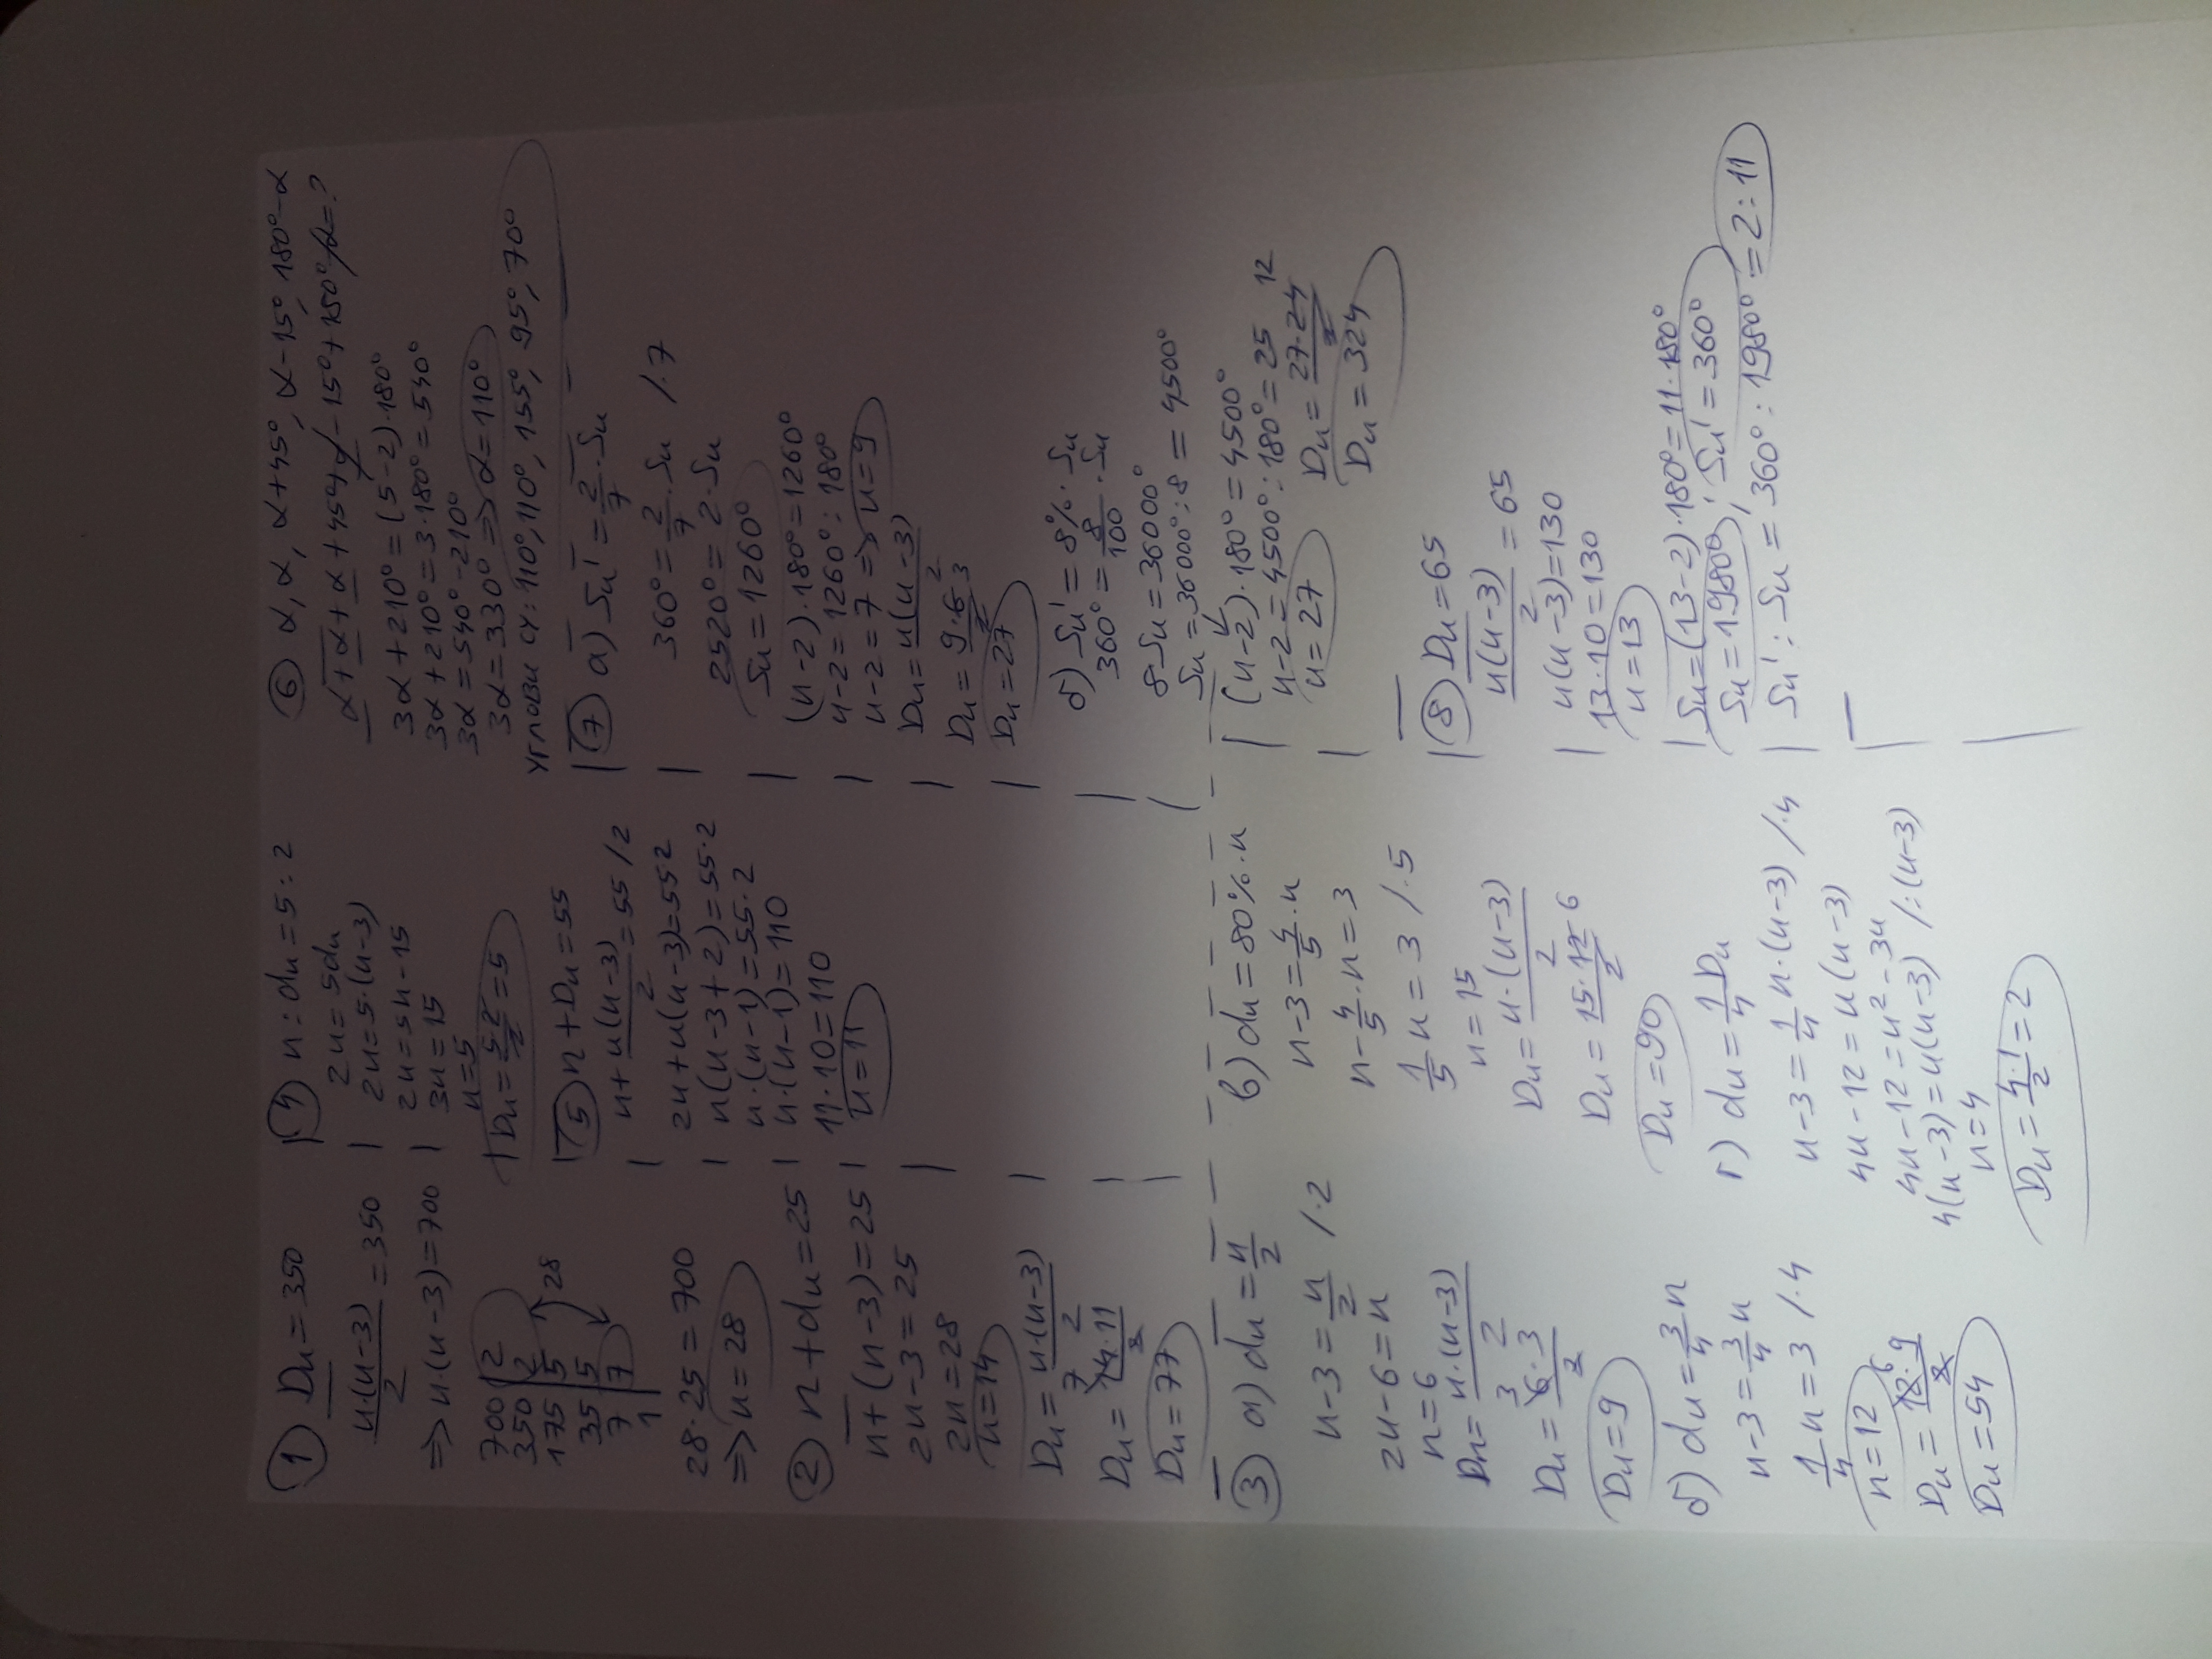 ① Dn = 350
n·(n-3)/2 = 350
⇒ n·(n-3) = 700
700 | 2
350 | 2
175 | 5
35 | 5
7 | 7
1
28
28·25 = 700
⇒ n = 28
② n + dn = 25
n + (n-3) = 25
2n - 3 = 25
2n = 28
n = 14
Dn = n·(n-3)/2
Dn = 14·11/2 7
Dn = 77
③ а) dn = n/2
n-3 = n/2 /·2
2n - 6 = n
n = 6
Dn = n·(n-3)/2
Dn = 6·3/2 3
Dn = 9
б) dn = 3/4 n
n-3 = 3/4 n
1/4 n = 3 /·4
n = 12
Dn = 12·9/2 6
Dn = 54
④ n : dn = 5 : 2
2n = 5dn
2n = 5·(n-3)
2n = 5n - 15
3n = 15
n = 5
Dn = 5·2/2 = 5
⑤ n + Dn = 55
n + n(n-3)/2 = 55 /2
2n + n(n-3) = 55·2
n(n-3+2) = 55·2
n·(n-1) = 55·2
n·(n-1) = 110
11·10 = 110
n = 11
в) dn = 80%·n
n-3 = 4/5·n
n - 4/5·n = 3
1/5 n = 3 /·5
n = 15
Dn = n·(n-3)/2
Dn = 15·12/2 6
Dn = 90
г) dn = 1/4 Dn
n-3 = 1/4 n·(n-3) /·4
4n - 12 = n(n-3)
4n - 12 = n² - 3n
4(n-3) = n(n-3) /:(n-3)
n = 4
Dn = 4·1/2 = 2
⑥ α, α, α+45°, α-15°, 180°-α
α+α+α+45°+α-15°+180°-α=?
3α + 210° = (5-2)·180°
3α + 210° = 3·180° = 540°
3α = 540° - 210°
3α = 330° ⇒ α = 110°
Углови су: 110°, 110°, 155°, 95°, 70°
⑦ а) Sn' = 2/7·Sn
360° = 2/7·Sn /·7
2520° = 2·Sn
Sn = 1260°
(n-2)·180° = 1260°
n-2 = 1260° : 180°
n-2 = 7 ⇒ n = 9
Dn = n(n-3)/2
Dn = 9·6/2 3
Dn = 27
б) Sn' = 8%·Sn
360° = 8/100·Sn
8Sn = 36000°
Sn = 36000° : 8 = 4500°
(n-2)·180° = 4500°
n-2 = 4500° : 180° = 25
n = 27
Dn = 27·24/2 12
Dn = 324
⑧ Dn = 65
n(n-3)/2 = 65
n(n-3) = 130
13·10 = 130
n = 13
Sn = (13-2)·180° = 11·180°
Sn = 1980°, Sn' = 360°
Sn' : Sn = 360° : 1980° = 2 : 11